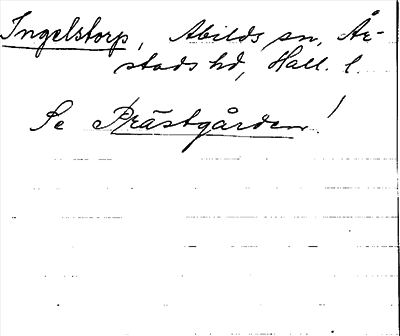 Ingelstorp, Abilds sn, År-
stads hd, Hall. l.
Se Prästgården!